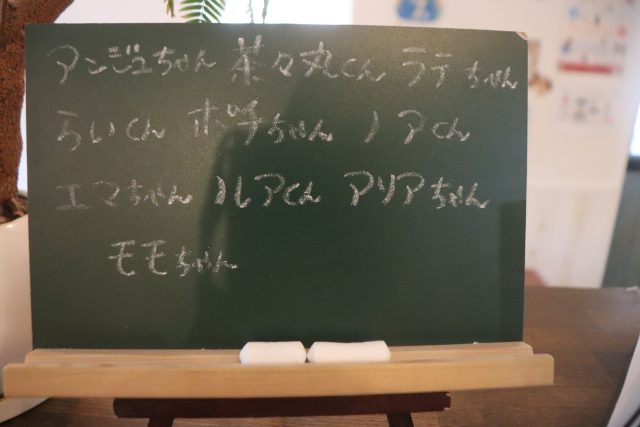 アンジュちゃん 茶々丸くん ラテちゃん
らいくん ポチちゃん ノアくん
エマちゃん ルアくん アリアちゃん
モモちゃん